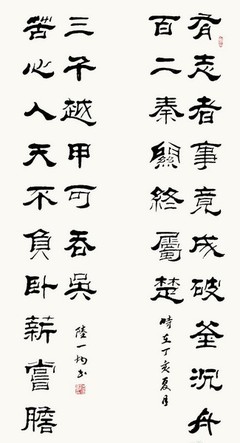 有志者事竟成破釜沉舟
百二秦關終屬楚
時在丁亥夏月
苦心人天不負臥薪嘗膽
三千越甲可吞吳
陸一均书